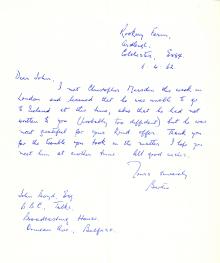 Rookery Farm,
Ardleigh,
Colchester, Essex
6. 4. 62
Dear John,
I met Christopher Marsden this week in
London and learned that he was unable to go
to Ireland at this time, also that he had not
written to you (probably too diffident) but he was
most grateful for your kind offer. Thank you
for the trouble you took in the matter. I hope you
meet him at another time. All good wishes.
Yours sincerely
John Boyd, Esq
B.B.C. Talks
Broadcasting House,
Ormeau Ave, Belfast.